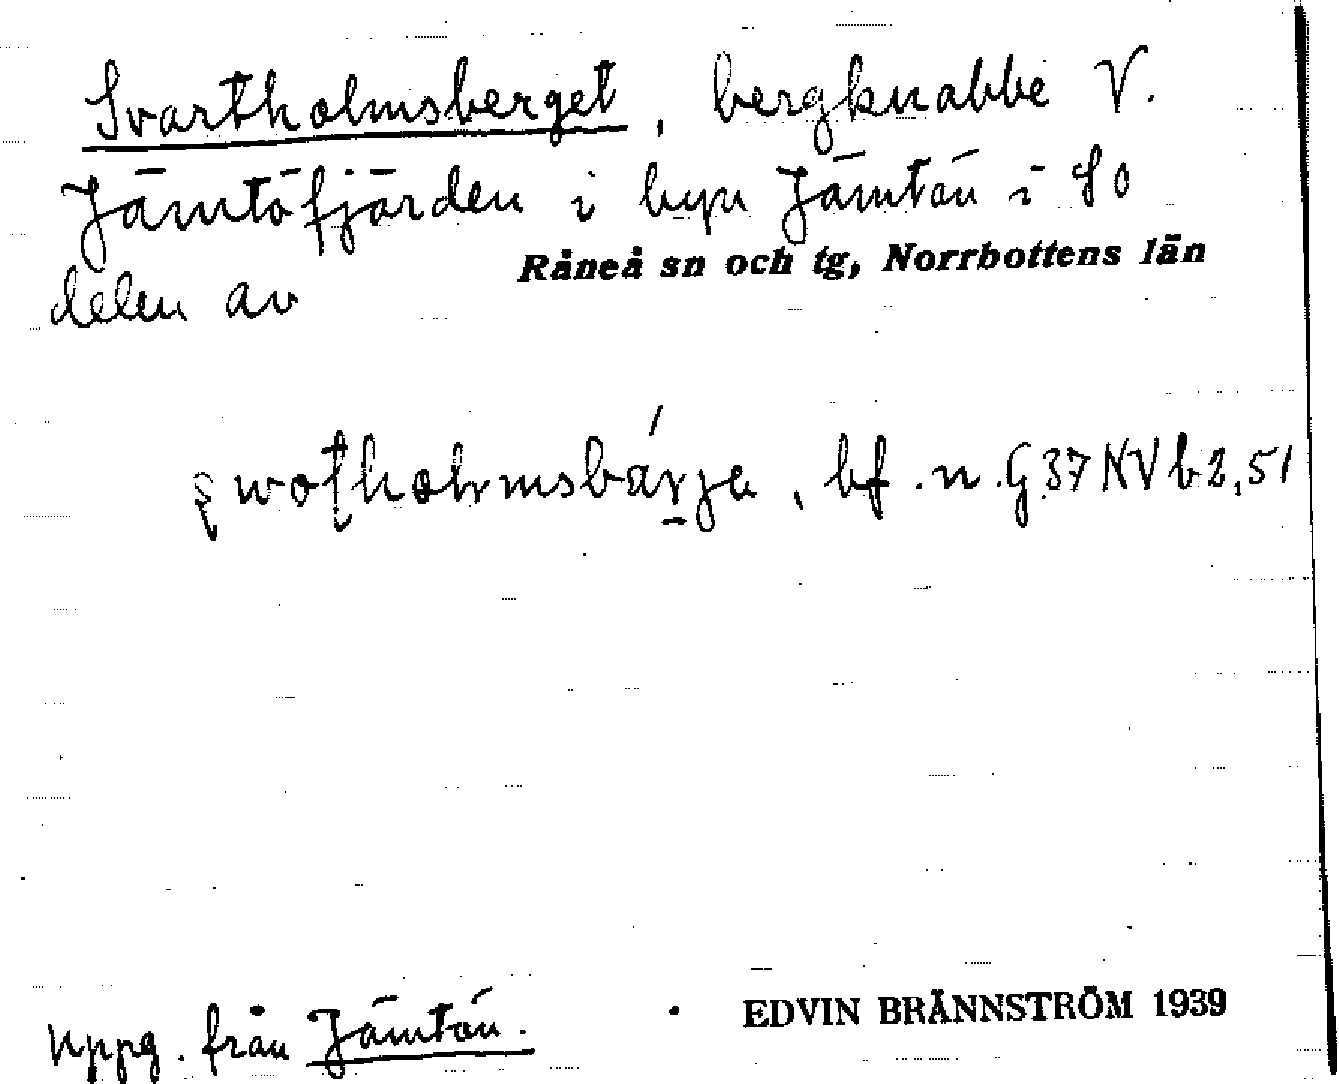 Svartholmsberget, bergknabbe V.
Jämtöfjärden i byn Jämtön i SO
delen av Råneå sn och tg, Norrbottens län
bf. n. G 37 NV b 2,51
Uppg. från Jämtön.
EDVIN BRÄNNSTRÖM 1939